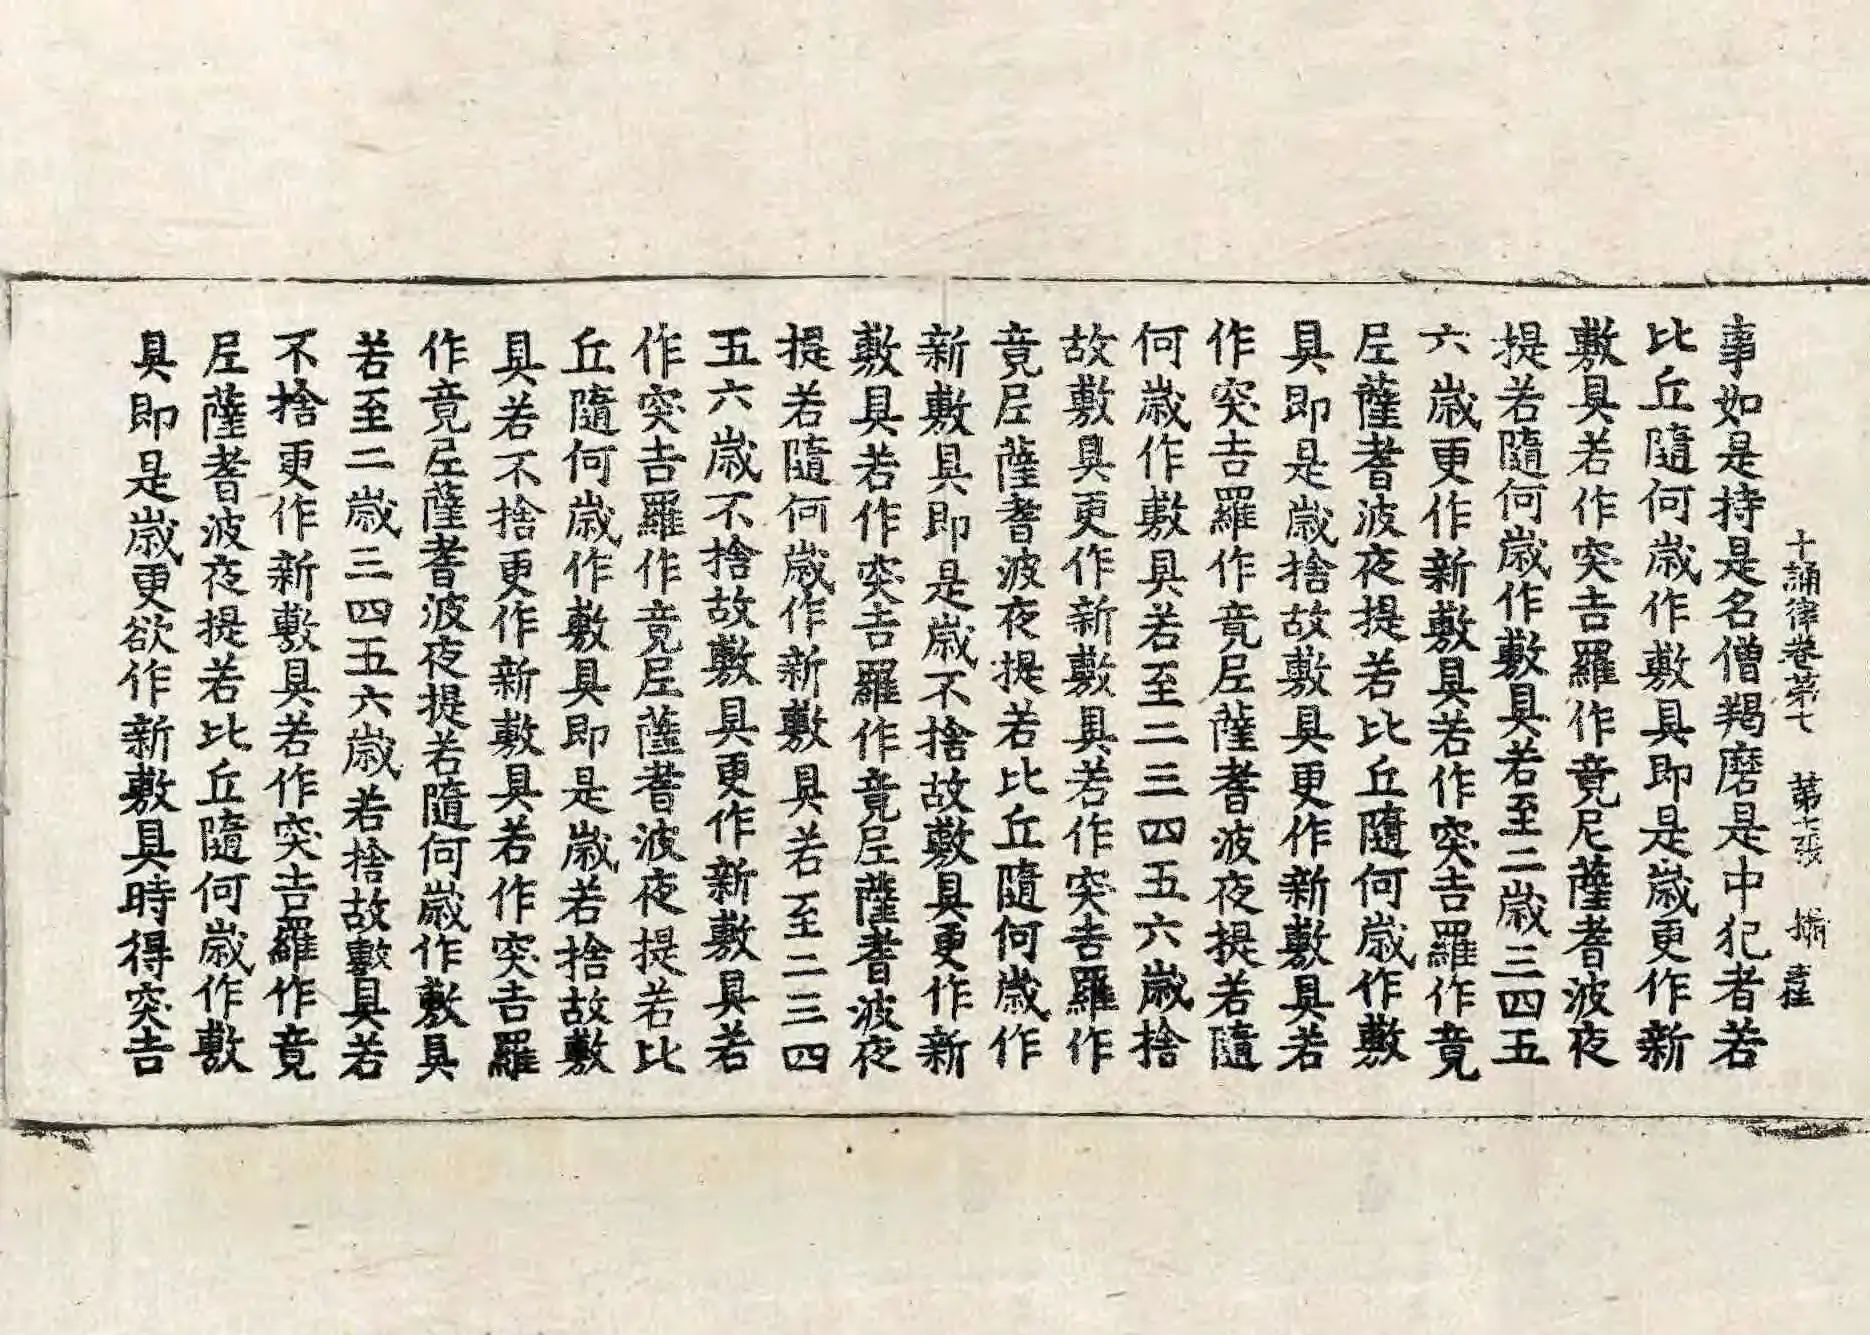 十誦律卷第七 第七張
事如是持是名僧羯磨是中犯者若
比丘隨何歲作敷具即是歲更作新
敷具若作突吉羅作竟尼薩耆波夜
提若隨何歲作敷具若至二歲三四五
六歲更作新敷具若作突吉羅作竟
尼薩耆波夜提若比丘隨何歲作敷
具即是歲捨故敷具更作新敷具若
作突吉羅作竟尼薩耆波夜提若隨
何歲作敷具若至二三四五六歲捨
故敷具更作新敷具若作突吉羅作
竟尼薩耆波夜提若比丘隨何歲作
新敷具即是歲不捨故敷具更作新
敷具若作突吉羅作竟尼薩耆波夜
提若隨何歲作新敷具若至二三四
五六歲不捨故敷具更作新敷具若
作突吉羅作竟尼薩耆波夜提若比
丘隨何歲作敷具即是歲若捨故敷
具若不捨更作新敷具若作突吉羅
作竟尼薩耆波夜提若隨何歲作敷具
若至二歲三四五六歲若捨故敷具若
不捨更作新敷具若作突吉羅作竟
尼薩耆波夜提若比丘隨何歲作敷
具即是歲更欲作新敷具時得突吉